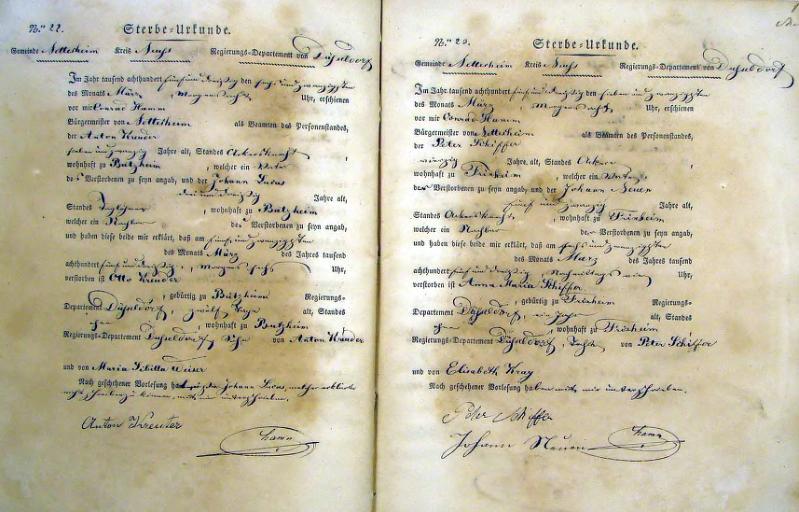 N.º 22. Sterbe-Urkunde.
Gemeinde Nettesheim Kreis Neuss Regierungs-Departement von Düsseldorf
Im Jahr tausend achthundert fünf und dreißig den sechs und zwanzigsten
des Monats März Uhr, erschienen
vor mir Conrad Hamm
Bürgermeister von Nettesheim als Beamten des Personenstandes,
der Anton Kreuder
sieben und zwanzig Jahre alt, Standes Ackersknecht
wohnhaft zu Butzheim, welcher ein Vater
des Verstorbenen zu seyn angab, und der Johann Lucas
drei und dreißig Jahre alt,
Standes Taglöhner, wohnhaft zu Butzheim
welcher ein Nachbar des Verstorbenen zu seyn angab,
und haben diese beide mir erklärt, daß am fünf und zwanzigsten
des Monats März des Jahres tausend
achthundert fünf und dreißig, Morgens sechs Uhr,
verstorben ist Otto Kreuder
, gebürtig zu Butzheim Regierungs-
Departement Düsseldorf, zwölf Tage alt, Standes
ohne, wohnhaft zu Butzheim
Regierungs-Departement Düsseldorf Sohn von Anton Kreuder
und von Maria Sibilla Weiser
Nach geschehener Vorlesung hat Johann Lucas, welcher erklärte
zu können, mit mir unterschrieben.
Anton Kreuter
Hamm
N.º 23. Sterbe-Urkunde.
Gemeinde Nettesheim Kreis Neuss Regierungs-Departement von Düsseldorf
Im Jahr tausend achthundert fünf und dreißig den sieben und zwanzigsten
des Monats März Uhr, erschienen
vor mir Conrad Hamm
Bürgermeister von Nettesheim als Beamten des Personenstandes,
der Peter Schiffer
vierzig Jahre alt, Standes Ackerer
wohnhaft zu Frixheim, welcher ein Vater
der Verstorbenen zu seyn angab, und der Johann Neuen
fünf und zwanzig Jahre alt,
Standes Ackersknecht, wohnhaft zu Frixheim
welcher ein Nachbar der Verstorbenen zu seyn angab,
und haben diese beide mir erklärt, daß am sechs und zwanzigsten
des Monats März des Jahres tausend
achthundert fünf und dreißig, Nachmittags Uhr,
verstorben ist Anna Maria Schiffer
, gebürtig zu Frixheim Regierungs-
Departement Düsseldorf, alt, Standes
ohne, wohnhaft zu Frixheim
Regierungs-Departement Düsseldorf, Tochter von Peter Schiffer
und von Elisabeth Kray
Nach geschehener Vorlesung haben mit mir unterschrieben.
Peter Schiffer
Johann Neuen
Hamm